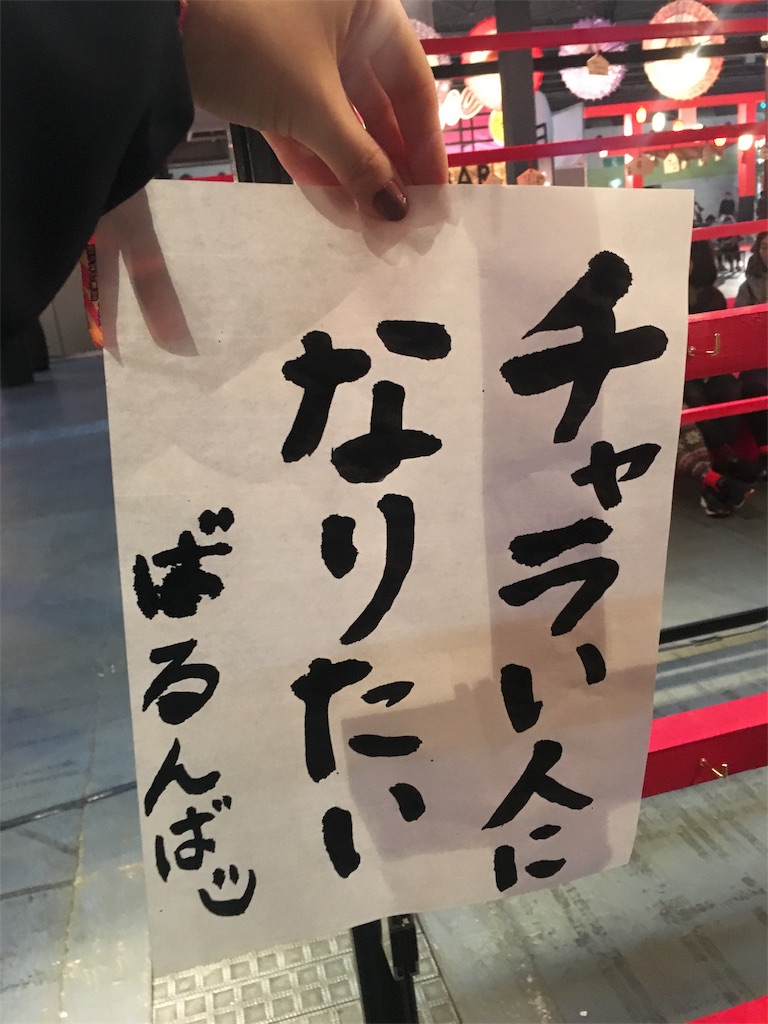 チャラい人に
なりたい
ばるんば
BAR